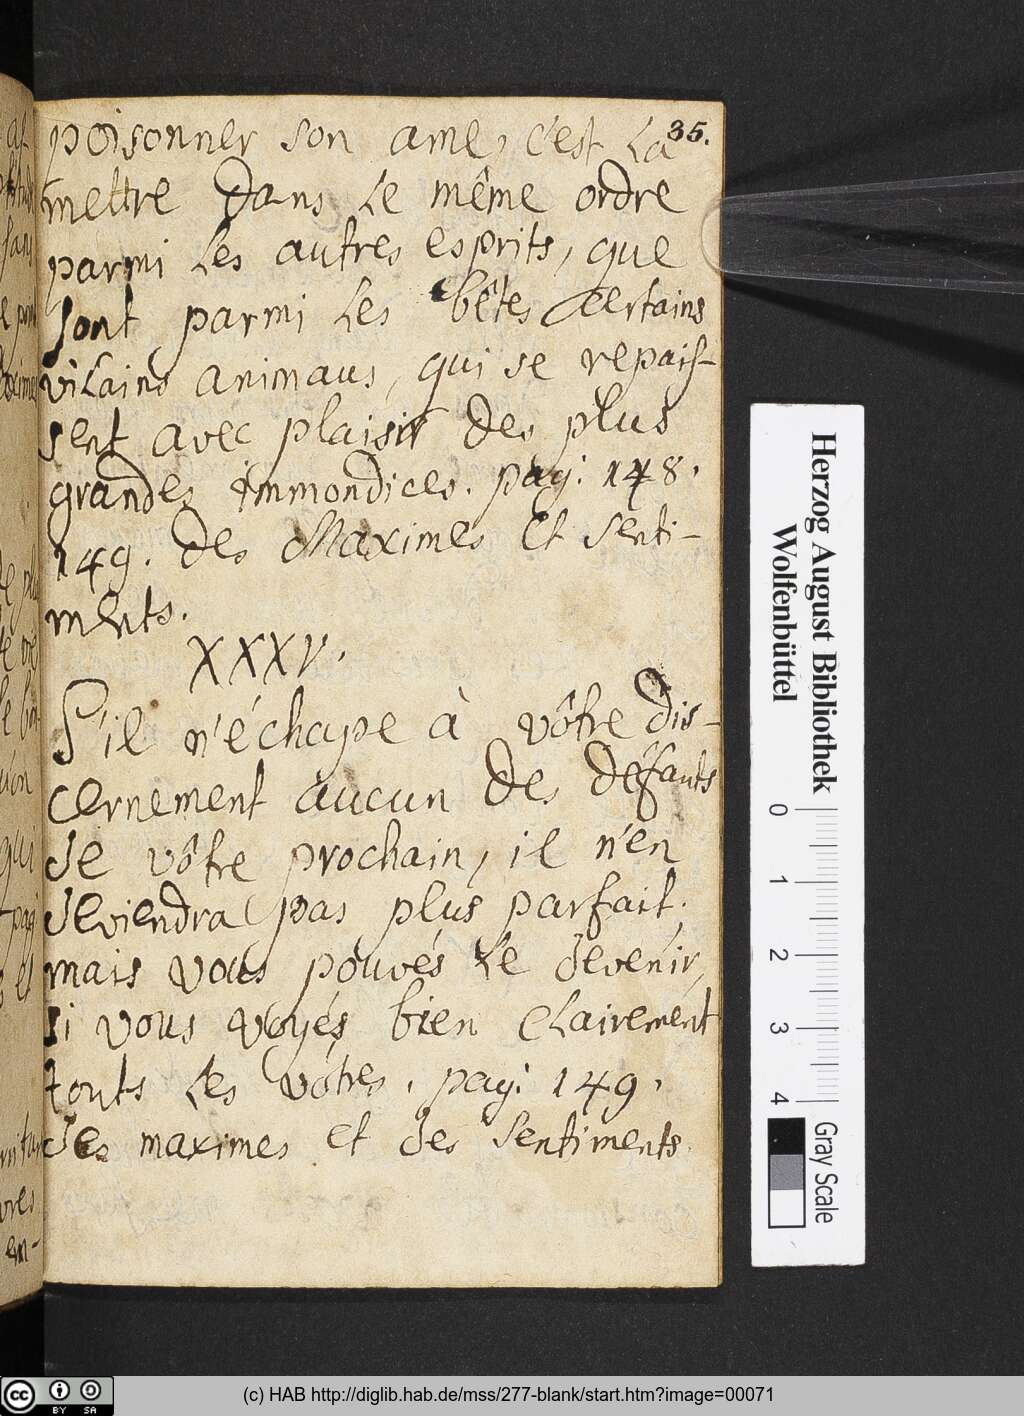 35.
poisonner son ame, c'est la
mettre dans le même ordre
parmi les autres esprits, que
sont parmi les bêtes certains
vilains animaus, qui se repais-
sent avec plaisir des plus
grandes immondices. pag: 148.
149. des Maximes et senti-
ments.
XXXV.
S'il n'échape à vôtre dis-
cernement aucun des défauts
de vôtre prochain, il n'en
deviendra pas plus parfait.
mais vous pouvés le devenir,
si vous voyés bien clairement
touts les vôtres. pag: 149.
des maximes et des sentiments.
Herzog August Bibliothek
Wolfenbüttel
0 1 2 3 4
Gray Scale
cc BY SA
(c) HAB http://diglib.hab.de/mss/277-blank/start.htm?image=00071